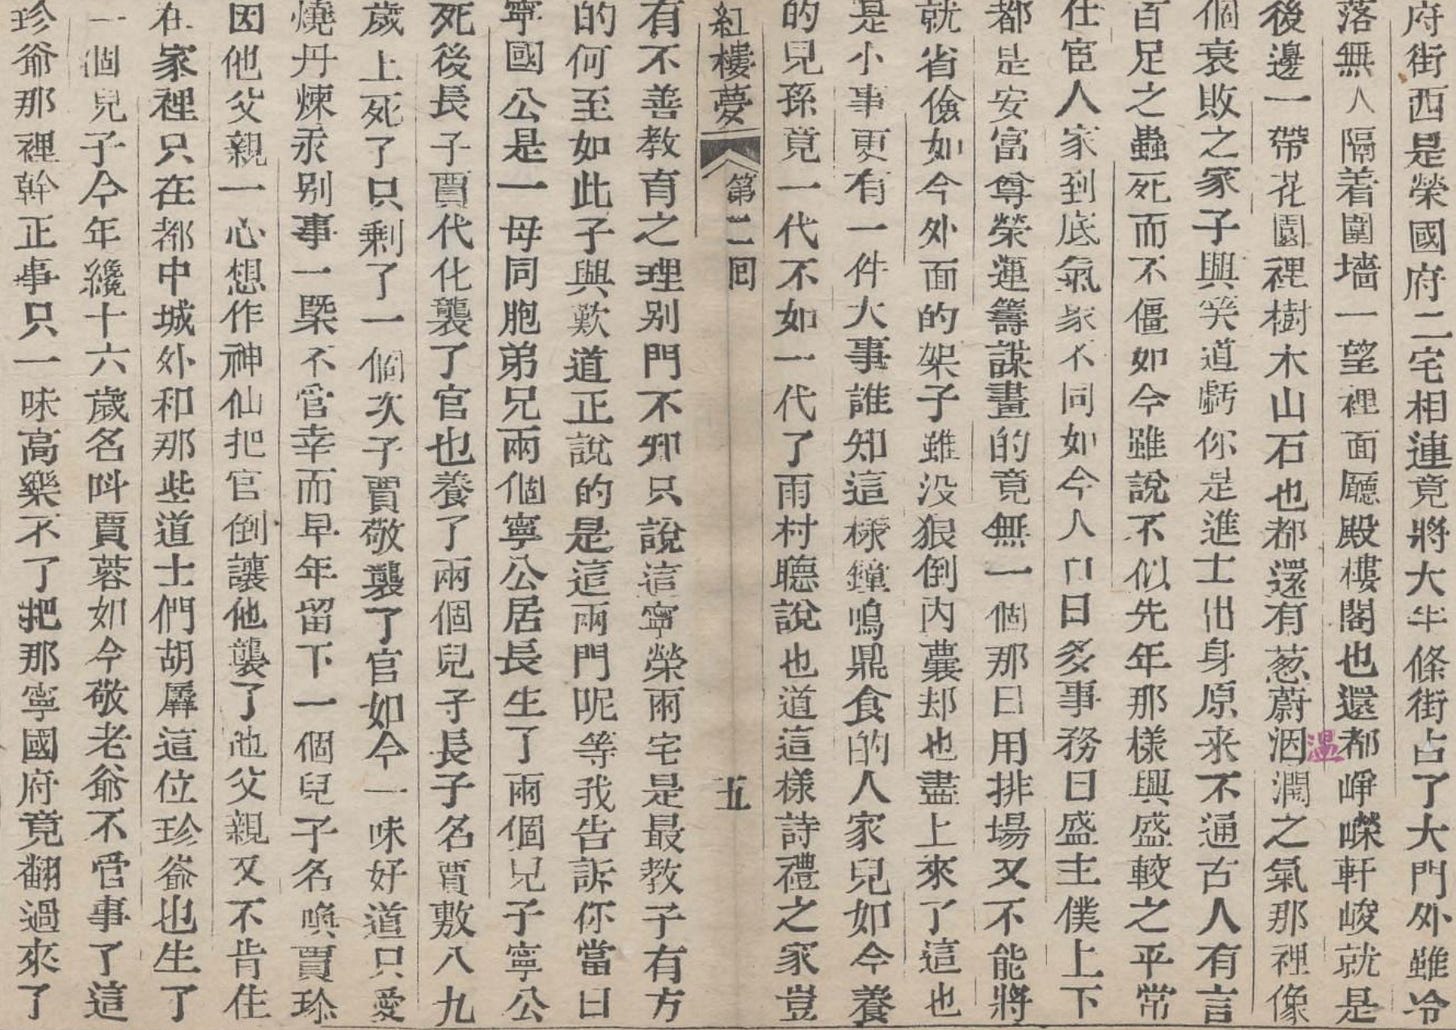 府街西是榮國府二宅相連竟將大半條街占了大門外雖冷
落無人隔着圍墻一望裡面廳殿樓閣也還都崢嶸軒峻就是
後邊一帶花園裡樹木山石也都還有葱蔚洇潤之氣那裡像
溫
個衰敗之家子興笑道虧你是進士出身原来不通古人有言
百足之蟲死而不僵如今雖說不似先年那樣興盛較之平常
仕宦人家到底氣象不同如今人口日多事務日盛主僕上下
都是安富尊榮運籌謀畫的竟無一個那日用排場又不能將
就省儉如今外面的架子雖没狠倒内囊却也盡上來了這也
是小事更有一件大事誰知這樣鐘鳴鼎食的人家兒如今養
的兒孫竟一代不如一代了雨村聽說也道這樣詩禮之家豈
紅樓夢 第二囘 五
有不善教育之理别門不知只說這寧榮兩宅是最教子有方
的何至如此子興歎道正說的是這兩門呢等我告訴你當日
寧國公是一母同胞弟兄兩個寧公居長生了兩個兒子寧公
死後長子賈代化襲了官也養了兩個兒子長子名賈敷八九
歲上死了只剩了一個次子賈敬襲了官如今一味好道只愛
燒丹煉汞别事一槩不管幸而早年留下一個兒子名喚賈珍
因他父親一心想作神仙把官倒讓他襲了他父親又不肯住
在家裡只在都中城外和那些道士們胡羼這位珍爺也生了
一個兒子今年纔十六歲名叫賈蓉如今敬老爺不管事了這
珍爺那裡幹正事只一味高樂不了把那寧國府竟翻過來了